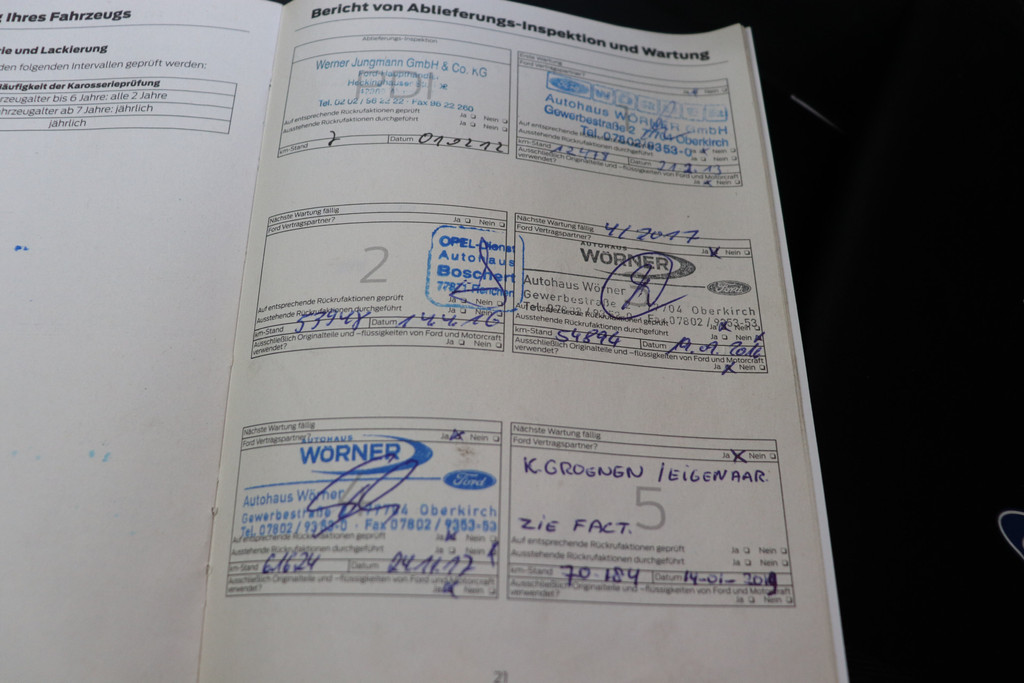 g Ihres Fahrzeugs
rie und Lackierung
den folgenden Intervallen geprüft werden:
Häufigkeit der Karosserieprüfung
rzeugalter bis 6 Jahre: alle 2 Jahre
hrzeugalter ab 7 Jahre: jährlich
jährlich
Bericht von Ablieferungs-Inspektion und Wartung
Ablieferungs-Inspektion
PDI
Werner Jungmann GmbH & Co. KG
Ford-Haupthändler
Tel. 02 02 / 56 22 22 · Fax 86 22 260
Auf entsprechende Rückrufaktionen geprüft Ja Nein
Ausstehende Rückrufaktionen durchgeführt Ja Nein
km-Stand 7 Datum 01.02.12
Ford Vertragspartner?
Autohaus WÖRNER GmbH
Gewerbestraße 2 77704 Oberkirch
Tel. 07802/9353-0
Auf entsprechende Rückrufaktionen geprüft
Ausstehende Rückrufaktionen durchgeführt Ja Nein
km-Stand Datum 21.2.13
Ausschließlich Originalteile und -flüssigkeiten von Ford und Motorcraft
verwendet? Ja Nein
Nächste Wartung fällig
Ford Vertragspartner? Ja Nein
2
OPEL-Dienst
Autohaus
Boschert
Auf entsprechende Rückrufaktionen geprüft Ja Nein
Ausstehende Rückrufaktionen durchgeführt Ja Nein
km-Stand 53948 Datum 14.4.16
Ausschließlich Originalteile und -flüssigkeiten von Ford und Motorcraft
verwendet? Ja Nein
Nächste Wartung fällig 4/2017
Ford Vertragspartner? Ja Nein
AUTOHAUS
WÖRNER
Ford
Autohaus Wörner
Gewerbestraße 77704 Oberkirch
Tel. 07802/9353-0 Fax 07802/9353-53
Auf entsprechende Rückrufaktionen geprüft Ja Nein
Ausstehende Rückrufaktionen durchgeführt Ja Nein
km-Stand 54894 Datum
Ausschließlich Originalteile und -flüssigkeiten von Ford und Motorcraft
verwendet? Ja Nein
Nächste Wartung fällig
Ford Vertragspartner? Ja Nein
AUTOHAUS
WÖRNER
Ford
Autohaus Wörner
Gewerbestraße 77704 Oberkirch
Tel. 07802/9353-0 · Fax 07802/9353-53
Auf entsprechende Rückrufaktionen geprüft Ja Nein
Ausstehende Rückrufaktionen durchgeführt Ja Nein
km-Stand 61624 Datum 24.11.17
Ausschließlich Originalteile und -flüssigkeiten von Ford und Motorcraft
verwendet? Ja
Nächste Wartung fällig
Ford Vertragspartner? Ja Nein
K.GROENEN /EIGENAAR.
5
ZIE FACT.
Auf entsprechende Rückrufaktionen geprüft Ja Nein
Ausstehende Rückrufaktionen durchgeführt Ja Nein
km-Stand 70-184 Datum 14-01-2019
Ausschließlich Originalteile und -flüssigkeiten von Ford und Motorcraft
verwendet? Ja Nein
21